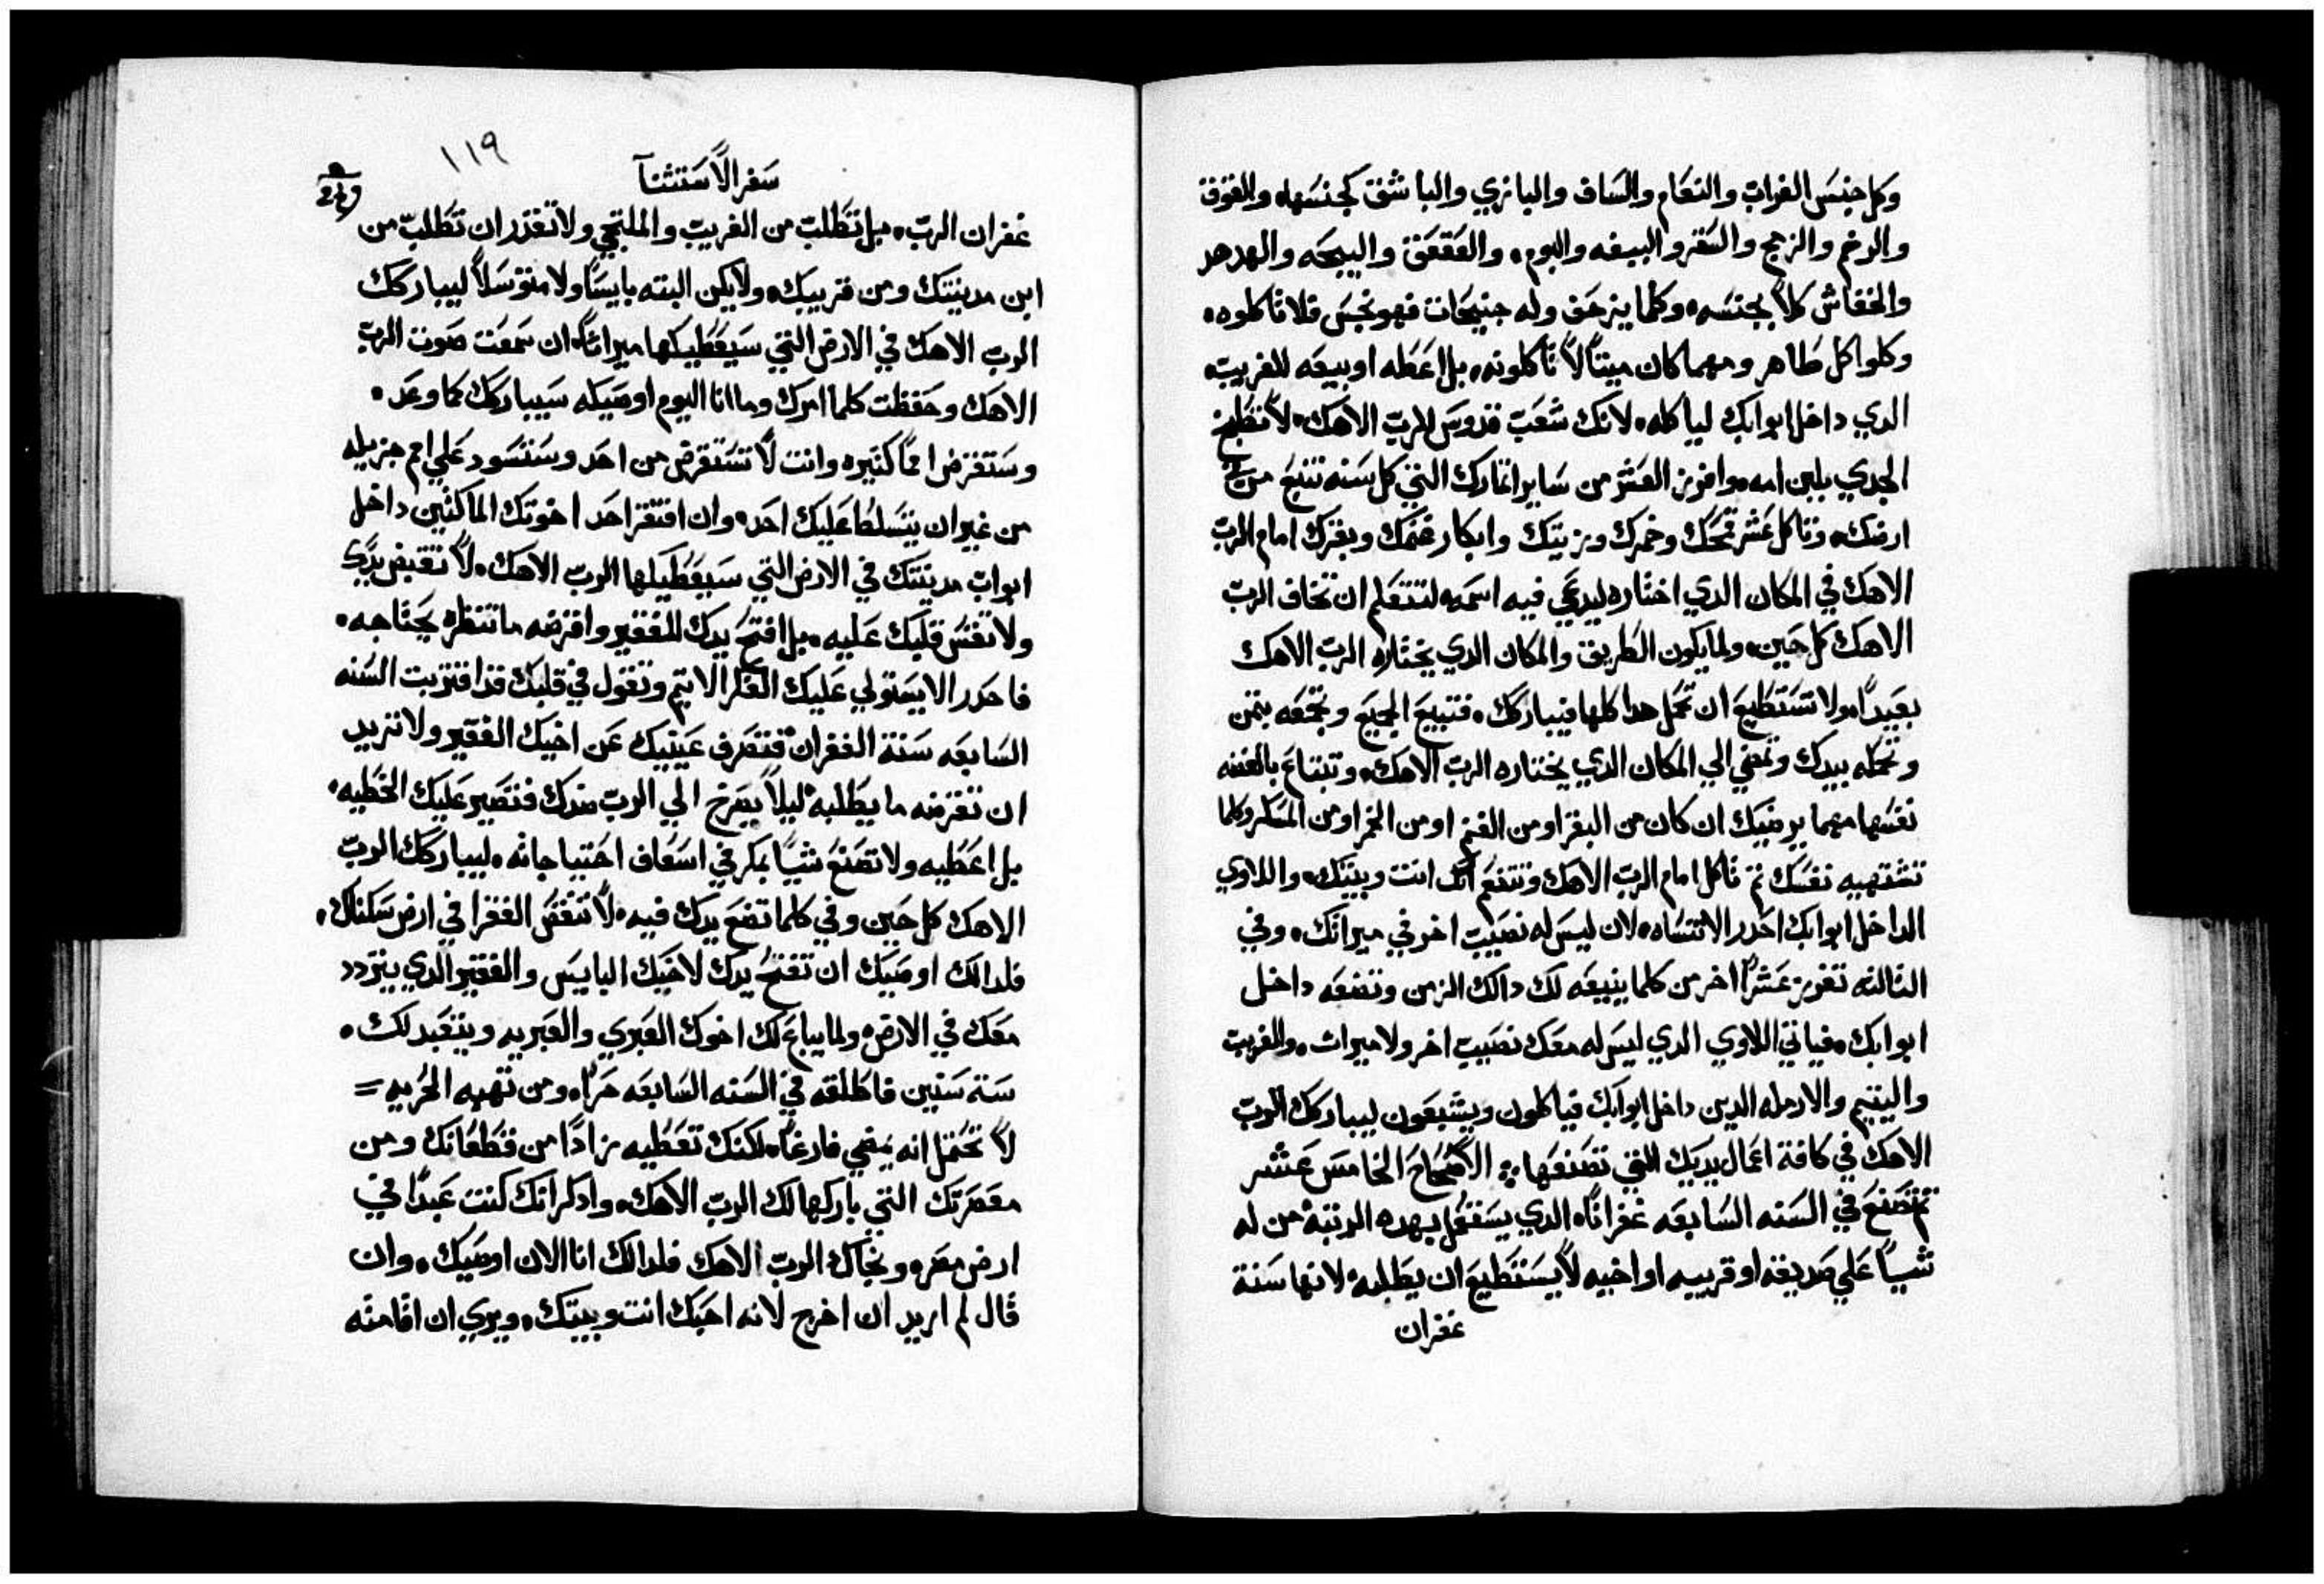 وكل جنس الغراب والنعام والساف والبازي والباشق كجنسها والقوق
والرخم والزمج والسقر والببغه والبوم، والعقعق والبيجه والهدهد
والخفاش كلاً بجنسه، وكلما يزحف وله جنيحات فهو نجس فلا تاكلوه،
وكلوا كل طاهر ومهما كان ميتاً لا تاكلونه، بل اعطه او بيعه للغريب
الدي داخل ابوابك لياكله، لانك شعب قدوس للرب الاهك، لا تطبخ
الجدي بلبن امه، وافرز العشر من ساير اتمارك التي كل سنه تنبع من
ارضك، وتاكل عشر قمحك وخمرك وزيتك وابكار غنمك وبقرك امام الرب
الاهك في المكان الدي اختاره ليدعي فيه اسمه، لتتعلم ان تخاف الرب
الاهك كل حين، ولما يكون الطريق والمكان الدي يختاره الرب الاهك
بعيداً، ولا تستطيع ان تحمل هدا كلها فيباركك، فتبيع الجميع وتجمعه بتمن
وتحمله بيدك وتمضي الي المكان الدي يختاره الرب الاهك، وتبتاع بالفضه
نفسها مهما يرضيك ان كان من البقر او من الغنم او من الخمر او من المسكر وكلما
تشتهيه نفسك تم تاكل امام الرب الاهك وتتنعم انت وبيتك، واللاوي
الداخل ابوابك احدر الا تنساه، لان ليس له نصيب اخر في ميراتك، وفي
التالته تفرز عشراً اخر من كلما ينبعه لك دالك الزمن وتضعه داخل
ابوابك، فياتي اللاوي الدي ليس له معك نصيب اخر ولا ميرات، والغريب
واليتيم والارمله الدين داخل ابوابك فياكلون ويشبعون ليباركك الرب
الاهك في كافة اعمال يديك التي تصنعها، الاصحاح الخامس عشر
تم تصنع في السنه السابعه غفراناً، الدي يستعمل بهده الرتبة، من له
شيياً علي صديقه او قريبه او اخيه لا يستطيع ان يطلبه، لانها سنة
غفران
١١٩
سفر الاستثنآ
غفران الرب، بل تطلب من الغريب والملتجي ولا تقدر ان تطلب من
ابن مدينتك ومن قريبك، ولا يكن البته بايساً ولا متوسلاً ليباركك
الرب الاهك في الارض التي سيعطيكها ميراتاً، ان سمعت صوت الرب
الاهك وحفظت كلما امرك وما انا اليوم اوصيكه سيباركك كما وعد،
وستقرض امماً كتيره وانت لا تستقرض من احد وستسود علي امم جزيله
من غير ان يتسلط عليك احد، وان افتقر احد اخوتك الماكتين داخل
ابواب مدينتك في الارض التي سيعطيكها الرب الاهك، لا تقبض يدك
ولا تقس قلبك عليه، بل افتح يدك للفقير واقرضه ما تنظره يحتاجه،
فاحدر الا يستولي عليك الفكر الاتيم وتقول في قلبك قد اقتربت السنه
السابعه سنة الغفران، فتصرف عينيك عن اخيك الفقير ولا تريد
ان تقرضه ما يطلبه، ليلاً يصرخ الي الرب ضدك فتصير عليك الخطيه،
بل اعطيه ولا تصنع شيياً بمكر في اسعاف احتياجاته، ليباركك الرب
الاهك كل حين وفي كلما تضع يدك فيه، لا تنقص الفقرا في ارض سكناك،
فلدالك اوصيك ان تفتح يدك لاخيك البايس والفقير الدي يتردد
معك في الارض، ولما يباع لك اخوك العبري والعبريه ويتعبد لك،
ستة سنين فاطلقه في السنه السابعه حراً، ومن تهبه الحريه =
لا تحتمل انه يمضي فارغاً، لكنك تعطيه زاداً من قطعانك ومن
معصرتك التي باركها لك الرب الاهك، وادكر انك كنت عبداً في
ارض مصر، ونجاك الرب الاهك فلدالك انا الان اوصيك، وان
قال لم اريد ان اخرج لانه احبك انت وبيتك، ويري ان اقامته